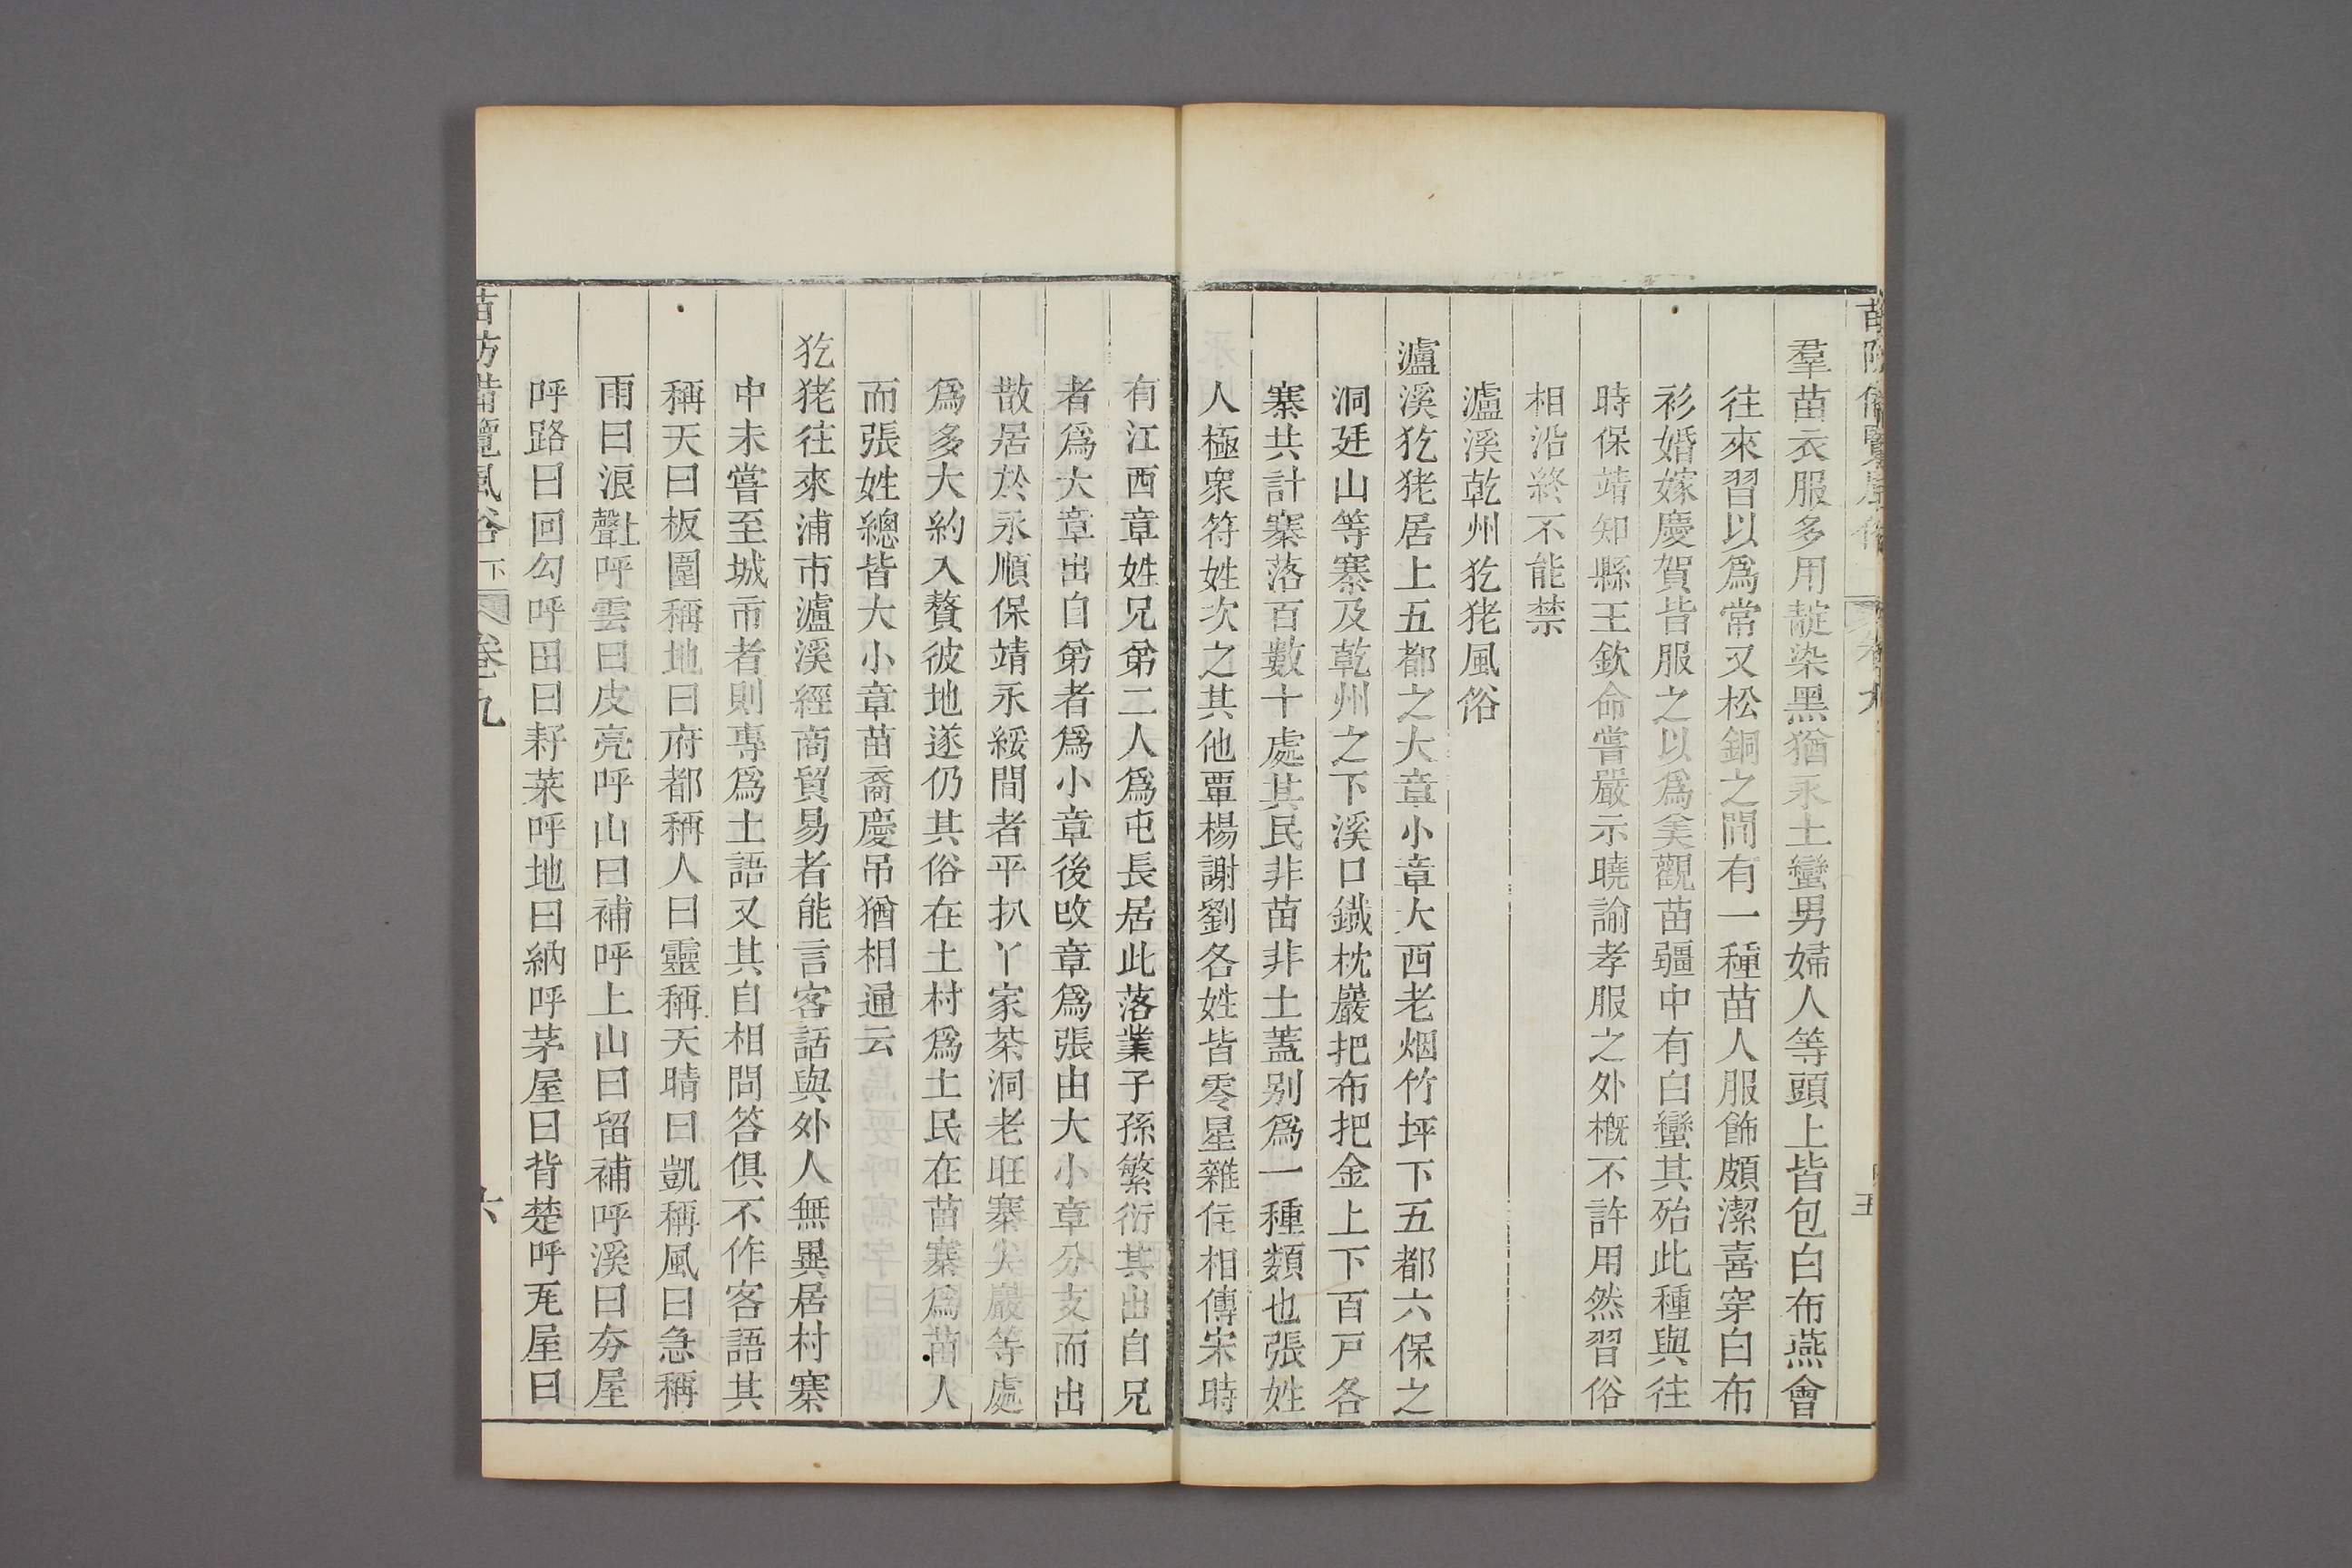 苗防備覽風俗 卷九 五
羣苗衣服多用靛染黑猶永土蠻男婦人等頭上皆包白布燕會
往來習以爲常又松銅之間有一種苗人服飾頗潔喜穿白布
衫婚嫁慶賀皆服之以爲美觀苗疆中有白蠻其殆此種與往
時保靖知縣王欽命嘗嚴示曉諭孝服之外槪不許用然習俗
相沿終不能禁
瀘溪乾州犵狫風俗
瀘溪犵狫居上五都之大章小章大西老烟竹坪下五都六保之
洞廷山等寨及乾州之下溪口鐵枕巖把布把金上下百戸各
寨共計寨落百數十處其民非苗非土蓋别爲一種類也張姓
人極衆符姓次之其他覃楊謝劉各姓皆零星雜住相傳宋時
有江西章姓兄弟二人爲屯長居此落業子孫繁衍其出自兄
者爲大章出自弟者爲小章後改章爲張由大小章分支而出
散居於永順保靖永綏間者平扒丫家茶洞老旺寨尖巖等處
爲多大約入贅彼地遂仍其俗在土村爲土民在苗寨爲苗人
而張姓總皆大小章苗裔慶吊猶相通云
犵狫往來浦市瀘溪經商貿易者能言客話與外人無異居村寨
中未嘗至城市者則專爲土語又其自相問答俱不作客語其
稱天曰板圍稱地曰府都稱人曰靈稱天晴曰凱稱風曰急稱
雨曰浪上聲呼雲曰皮亮呼山曰補呼上山曰留補呼溪曰夯屋
呼路曰回勾呼田曰耔菜呼地曰納呼茅屋曰背楚呼瓦屋曰
苗防備覽風俗下 卷九 六